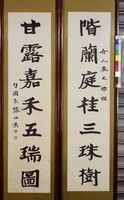 階蘭庭桂三珠樹
甘露嘉禾五瑞圖